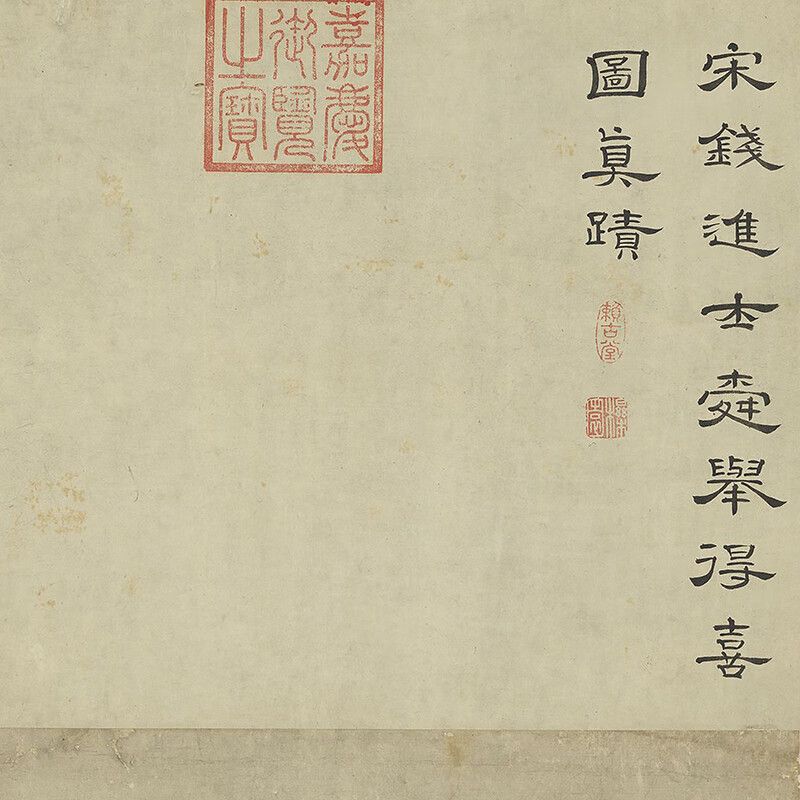 宋錢進士舜舉得喜
圖眞蹟
賴古堂
櫟園
嘉慶
御覽
之寶